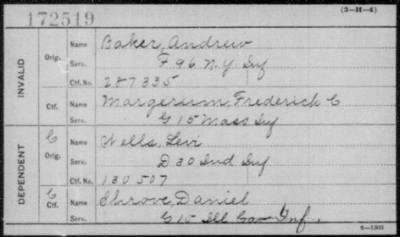 172519 (3-H-4)
INVALID
Orig. Name Baker, Andrew
Serv. F 96 N.Y Inf
Ctf. No. 287335
Ctf. Name Margerum, Frederick C
Serv. G 15 Mass Inf
DEPENDENT
C Orig. Name Wells, Levi
Serv. D 30 Ind Inf
Ctf. No. 130507
C Ctf. Name Shrove, Daniel
Serv. G 10 Ill Inf.
6-1303